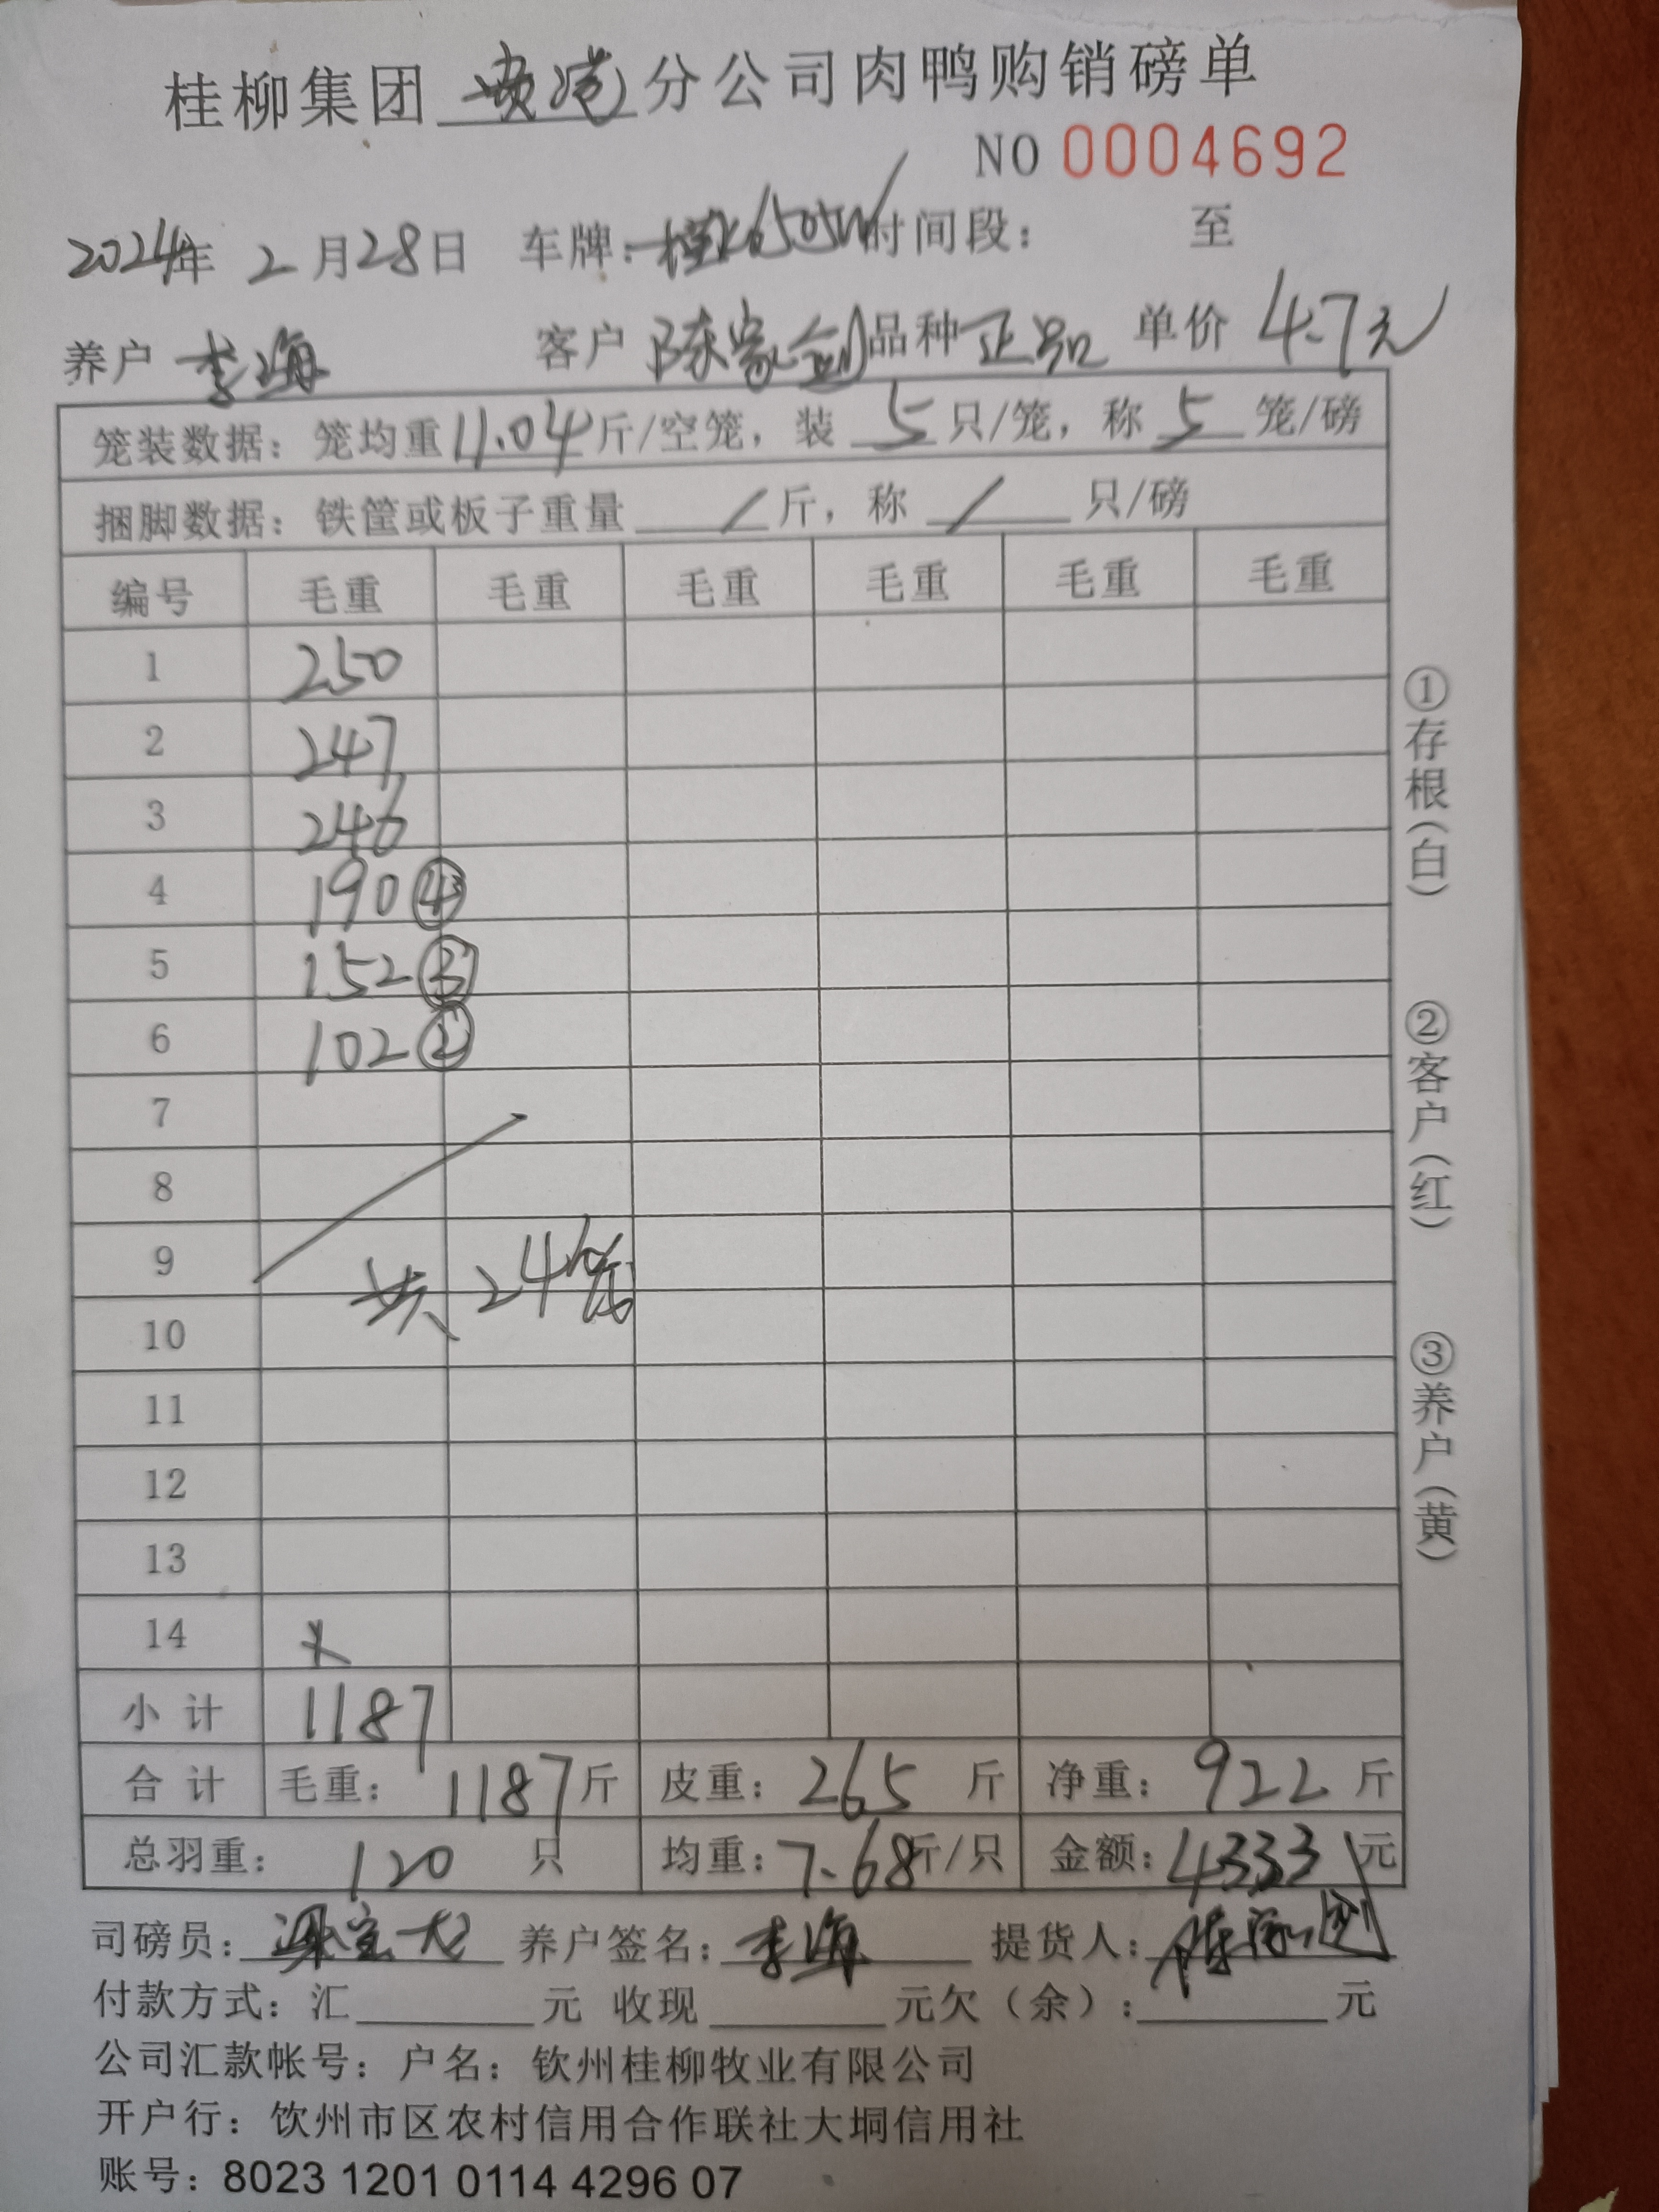 桂柳集团贵港分公司肉鸭购销磅单
NO 0004692
2024年 2月28日 车牌:桂K6505W 时间段: 至
养户 李海 客户 陈家剑 品种 正品 单价 4.7元
笼装数据:笼均重11.04斤/空笼,装 5 只/笼,称 5 笼/磅
捆脚数据:铁筐或板子重量 / 斤,称 / 只/磅
编号 毛重 毛重 毛重 毛重 毛重 毛重
1 250
2 247
3 246
4 190 ④
5 152 ③
6 102 ②
7
8
9
共24笼
10
11
12
13
14
小 计 1187
合 计 毛重: 1187斤 皮重: 265 斤 净重: 922 斤
总羽重: 120 只 均重:7.68斤/只 金额:4333元
司磅员: 养户签名:李海 提货人:陈家剑
付款方式:汇 元 收现 元欠(余): 元
公司汇款帐号:户名:钦州桂柳牧业有限公司
开户行:饮州市区农村信用合作联社大垌信用社
账号:8023 1201 0114 4296 07
①存根(白)
②客户(红)
③养户(黄)